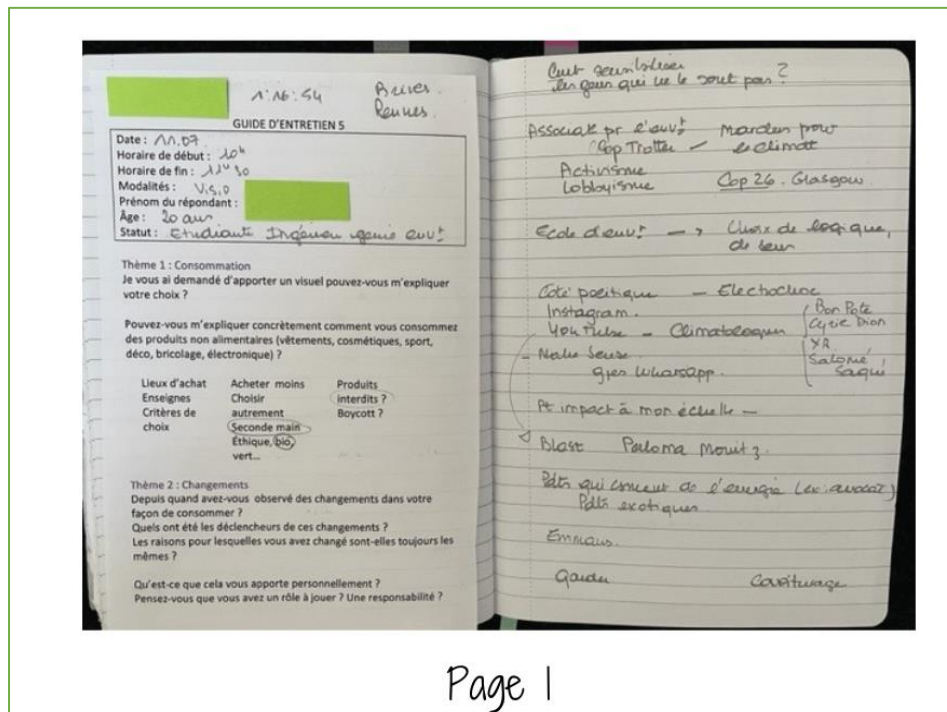 1:16:54
Rennes.
GUIDE D'ENTRETIEN 5
Date : 11.07
Horaire de début : 10h
Horaire de fin : 11h30
Modalités : Visio
Prénom du répondant :
Âge : 20 ans
Statut : Etudiante Ingénieur génie euvt
Thème 1 : Consommation
Je vous ai demandé d'apporter un visuel pouvez-vous m'expliquer
votre choix ?
Pouvez-vous m'expliquer concrètement comment vous consommez
des produits non alimentaires (vêtements, cosmétiques, sport,
déco, bricolage, électronique) ?
Lieux d'achat Acheter moins Produits
Enseignes Choisir interdits ?
Critères de autrement Boycott ?
choix Seconde main
Éthique, bio,
vert...
Thème 2 : Changements
Depuis quand avez-vous observé des changements dans votre
façon de consommer ?
Quels ont été les déclencheurs de ces changements ?
Les raisons pour lesquelles vous avez changé sont-elles toujours les
mêmes ?
Qu'est-ce que cela vous apporte personnellement ?
Pensez-vous que vous avez un rôle à jouer ? Une responsabilité ?
sensibiliser
les gens qui ne le sont pas ?
pr l'euvt Marches pour
Cop Trotter – le climat
Activisme
Lobbyisme Cop 26. Glasgow
Ecole d'euvt → Choix de logique,
de sens
Coté politique – Electochoc
Instagram. Bon Pote
YouTube – Climatologues Cyril Dion
XR
– Make Sense Salomé
gpes Whatsapp. Saqué
Pt impact à mon échelle –
Blast Paloma Moritz.
Pdts qui consomt de l'energie (ex: avocat)
Pdts exotiques.
Emmaus.
Covoiturage
Page 1